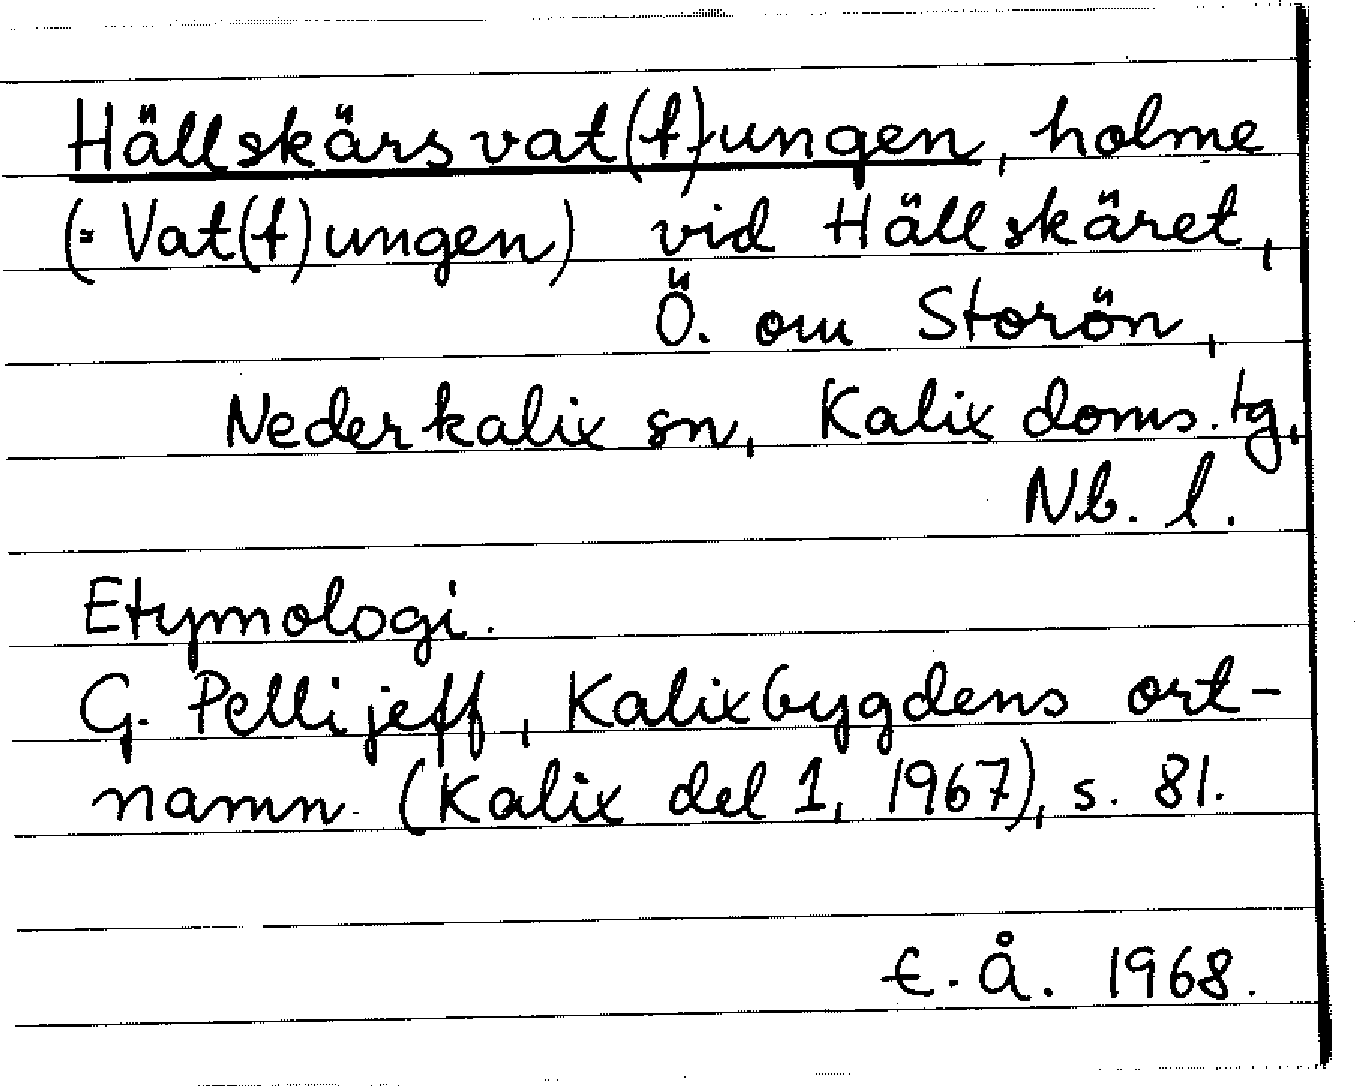 Hällskärsvat(t)ungen, holme
(= Vat(t)ungen) vid Hällskäret,
Ö. om Storön,
Nederkalix sn, Kalix doms.tg,
Nb. l.
Etymologi.
G. Pellijeff, Kalixbygdens ort-
namn. (Kalix del 1, 1967), s. 81.
E. Å. 1968.